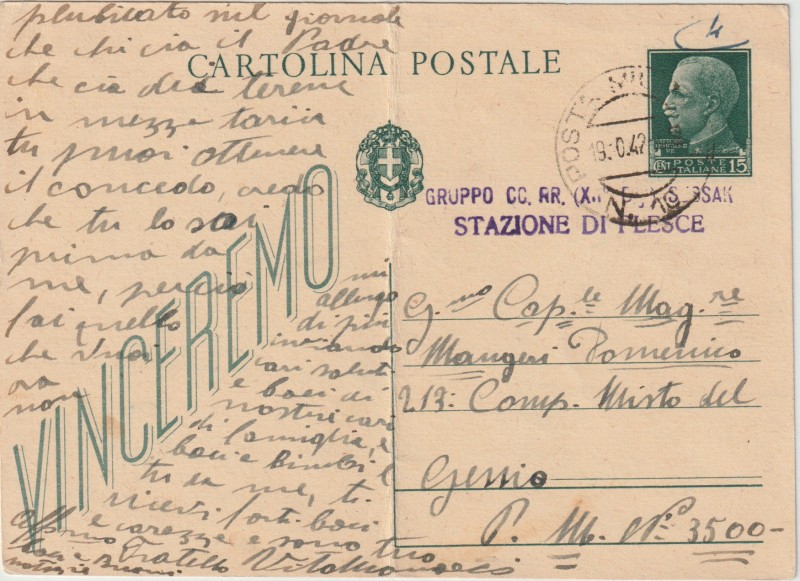 plubicato nel giornale
che chi cia il Padre
che cia dea terene
in mezze tariu
tu puoi ottenere
il concedo, credo
che tu lo sai
prima da
me, perciò
fai quello
che vuoi
ora
non
mi
allungo
di più
inviando
cari saluti
e baci di
nostri cari
di famiglia, e
baci e bimbi
tu da me, ti
ricevi forti baci
e carezze e sono tuo
Fratello Vito
CARTOLINA POSTALE
VINCEREMO
4
POSTA
19. 0.42
POSTE
ITALIANE
CENT 15
GRUPPO CC. RR.
STAZIONE DI PLESCE
G.mo Cap.le Mag.re
Mangeri Domenico
213: Comp. Misto del
Genio
P. M. N.o 3500-